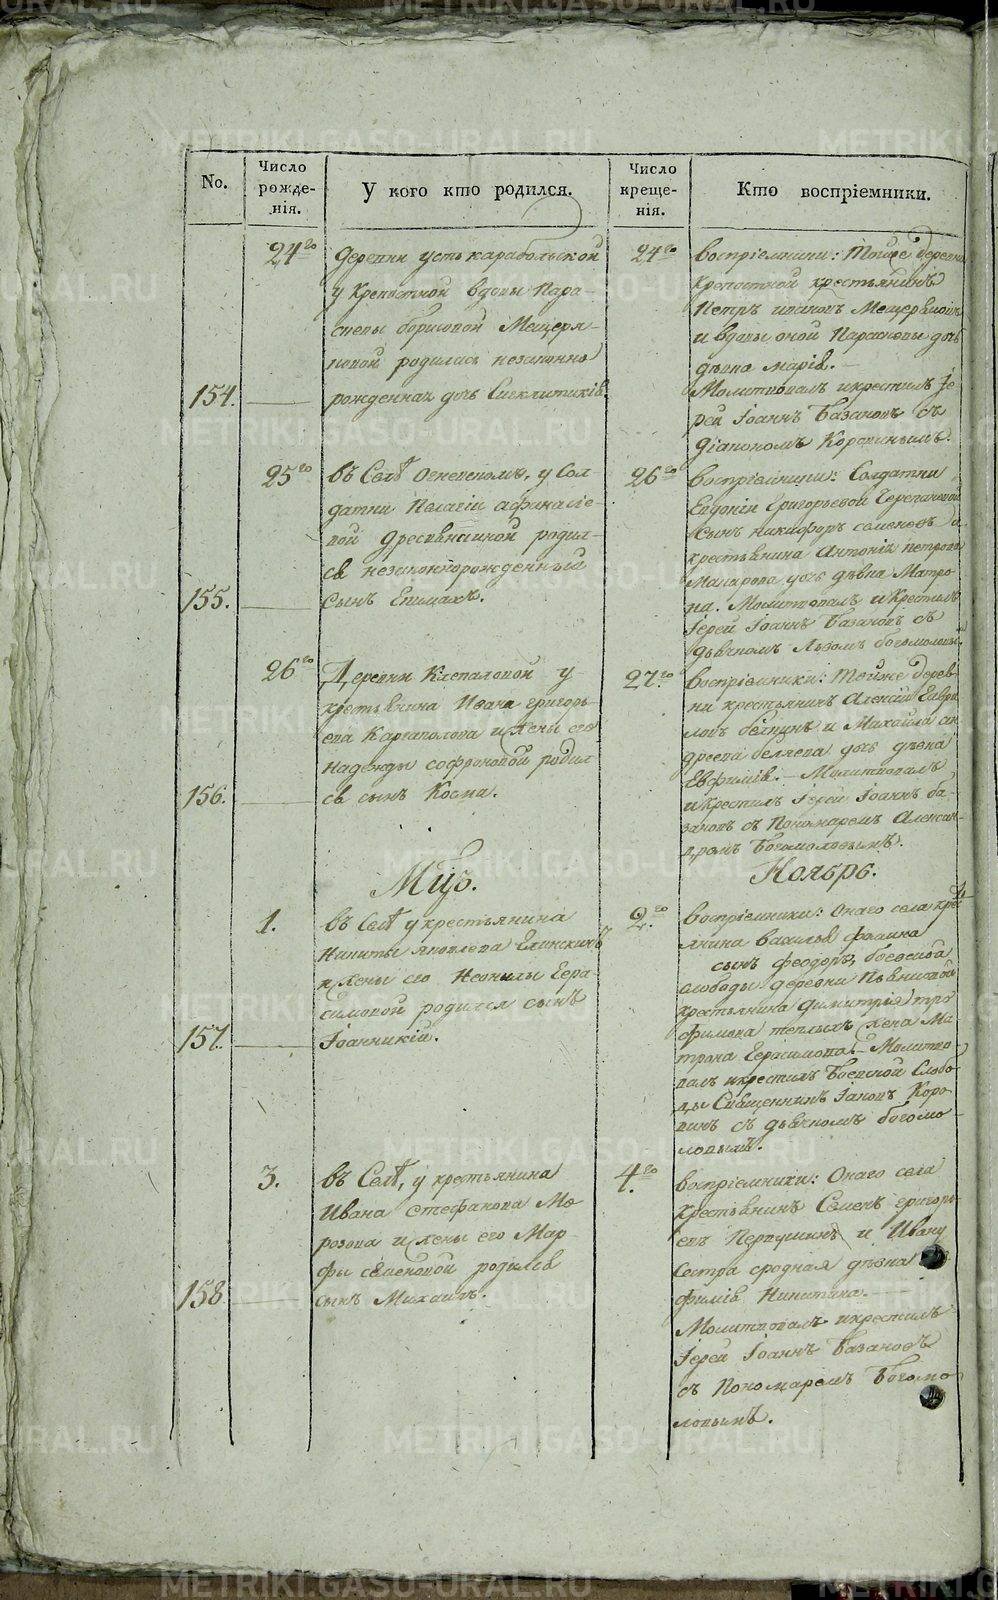 No.
Число рожде-нія.
У кого кто родился.
Число креще-нія.
Кто воспріемники.
154.
24го
деревни усть карабольской
у крепостной вдовы Пара-
скевы борисовой Мещеря-
ковой родилась незаконно
рожденная дочь Сигклитикія.
24го
воспріемники: тойже деревни
крепостной крестьянинъ
Петръ ивановъ Мещеряковъ
и вдовы оной Парасковьи дочь
девка марія.—
Молитвовалъ икрестилъ Іе-
рей Іоаннъ Базановъ съ
діакономъ Коровинымъ.
155.
25го
въ Селѣ Огневскомъ, у Сол-
датки Пелагіи афанасіе-
вой дресвянкиной родил-
ся незаконнорожденный
сынъ Епимахъ.
26го
воспріемники: Солдатки
Евдокіи Григорьевой Черепановой
сынъ никифоръ семеновъ и
крестьянина Антонія петрова
Макарова дочь девка Матро-
на. Молитвовалъ и крестилъ
Іерей Іоаннъ Базановъ съ
дьячкомъ Львомъ богомоловымъ.
156.
26го
Деревни Клепаловой у
крестьянина Ивана григорь-
ева Каргаполова и жены его
Надежды софроновой родил
ся сынъ Косма.
27го
воспріемники: тойже дерев-
ни крестьянинъ Алексій Гаври-
ловъ белянинъ и Михаила ан-
дреева беляева дочь девка
Евфимія.— Молитвовалъ
и крестилъ Іерей Іоаннъ ба-
зановъ съ Пономаремъ Алексан-
дромъ Богомоловымъ.
Мцъ.
Ноябрь.
157.
1.
въ Селѣ у крестьянина
Никиты яковлева Еланскихъ
и жены его Неонилы Гера-
симовой родился сынъ
Іоанникій.
2го
воспріемники: Онаго села крес
янина василья фомина
сынъ феодоръ, боевской
слободы деревни Пьянковой
крестьянина димитрія тро
фимова теплыхъ жена Ма-
трона Герасимова.— Молитво-
валъ икрестилъ Боевской Слобо-
ды Священникъ Іаковъ Коро-
винъ съ дьячкомъ богомо-
ловымъ.
158
3.
въ Селѣ, у крестьянина
Ивана стефанова Мо
розова и жены его Мар-
фы семеновой родился
сынъ Михаилъ.
4го
воспріемники: Онаго села
крестьянинъ Семенъ григорь
евъ и Ивану
Сестра сродная девка
фимія Никитина.—
Молитвовалъ икрестилъ
Іерей Іоаннъ Базановъ
съ Пономаремъ Богомо
ловымъ.
METRIKI.GASO-URAL.RU